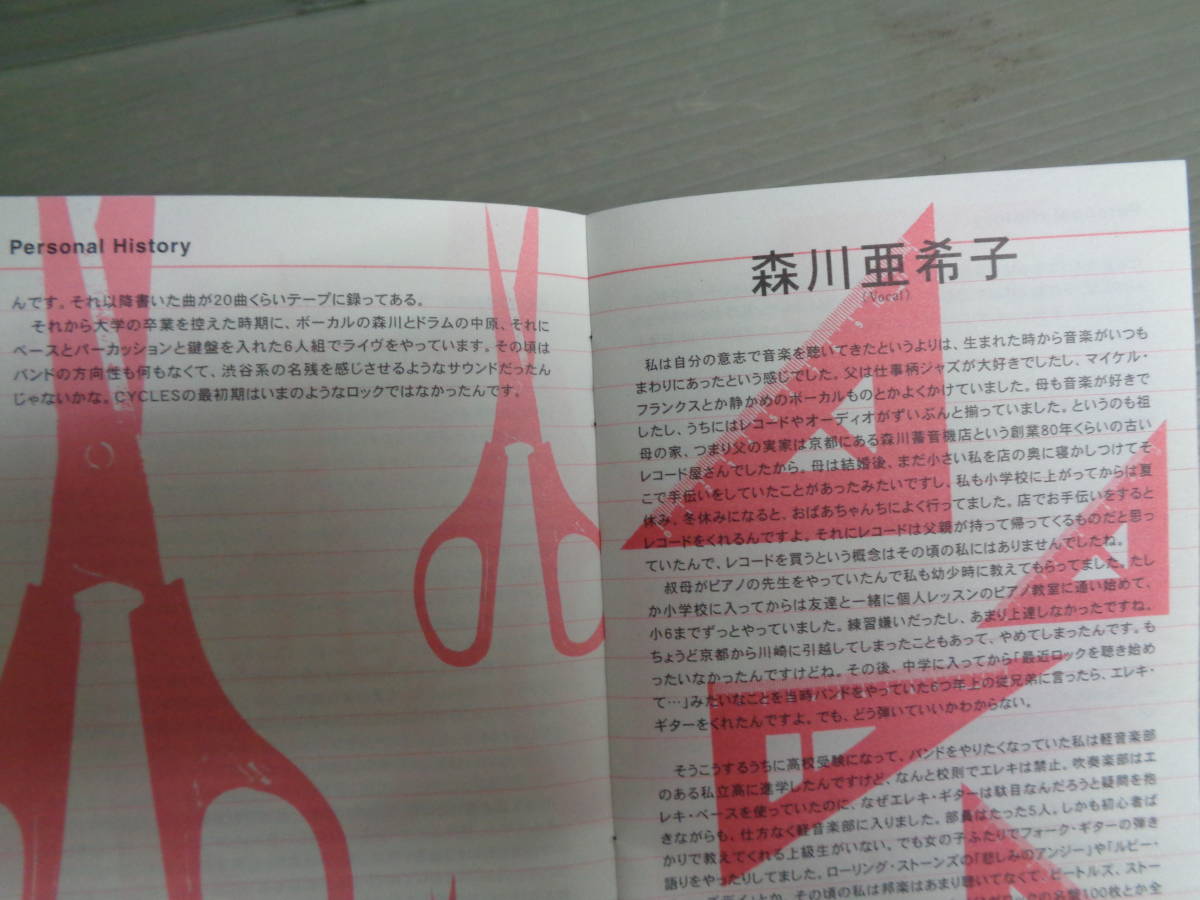 Personal History
んです。それ以降書いた曲が20曲くらいテープに録ってある。
それから大学の卒業を控えた時期に、ボーカルの森川とドラムの中原、それに
ベースとパーカッションと鍵盤を入れた6人組でライヴをやっています。その頃は
バンドの方向性も何もなくて、渋谷系の名残を感じさせるようなサウンドだったん
じゃないかな。CYCLESの最初期はいまのようなロックではなかったんです。
森川亜希子
(Vocal)
私は自分の意志で音楽を聴いてきたというよりは、生まれた時から音楽がいつも
まわりにあったという感じでした。父は仕事柄ジャズが大好きでしたし、マイケル・
フランクスとか静かめのボーカルものとかよくかけていました。母も音楽が好きで
したし、うちにはレコードやオーディオがずいぶんと揃っていました。というのも祖
母の家、つまり父の実家は京都にある森川蓄音機店という創業80年くらいの古い
レコード屋さんでしたから。母は結婚後、まだ小さい私を店の奥に寝かしつけてそ
こで手伝いをしていたことがあったみたいですし、私も小学校に上がってからは夏
休み、冬休みになると、おばあちゃんちによく行ってました。店でお手伝いをすると
レコードをくれるんですよ。それにレコードは父親が持って帰ってくるものだと思っ
ていたんで、レコードを買うという概念はその頃の私にはありませんでしたね。
叔母がピアノの先生をやっていたんで私も幼少時に教えてもらってました。たし
か小学校に入ってからは友達と一緒に個人レッスンのピアノ教室に通い始めて、
小6までずっとやっていました。練習嫌いだったし、あまり上達しなかったですね。
ちょうど京都から川崎に引越してしまったこともあって、やめてしまったんです。も
ったいなかったんですけどね。その後、中学に入ってから「最近ロックを聴き始め
て…」みたいなことを当時バンドをやっていた6つ年上の従兄弟に言ったら、エレキ・
ギターをくれたんですよ。でも、どう弾いていいかわからない。
そうこうするうちに高校受験になって、バンドをやりたくなっていた私は軽音楽部
のある私立高に進学したんですけど、なんと校則でエレキは禁止。吹奏楽部はエ
レキ・ベースを使っていたのに、なぜエレキ・ギターは駄目なんだろうと疑問を抱
きながらも、仕方なく軽音楽部に入りました。部員はたった5人。しかも初心者ば
かりで教えてくれる上級生がいない。でも女の子ふたりでフォーク・ギターの弾き
語りをやったりしてました。ローリング・ストーンズの「悲しみのアンジー」や「ルビー・
デイ」とか。その頃の私は邦楽はあまり聴いてなくて、ビートルズ、ストー
ロックの名盤100枚とか全